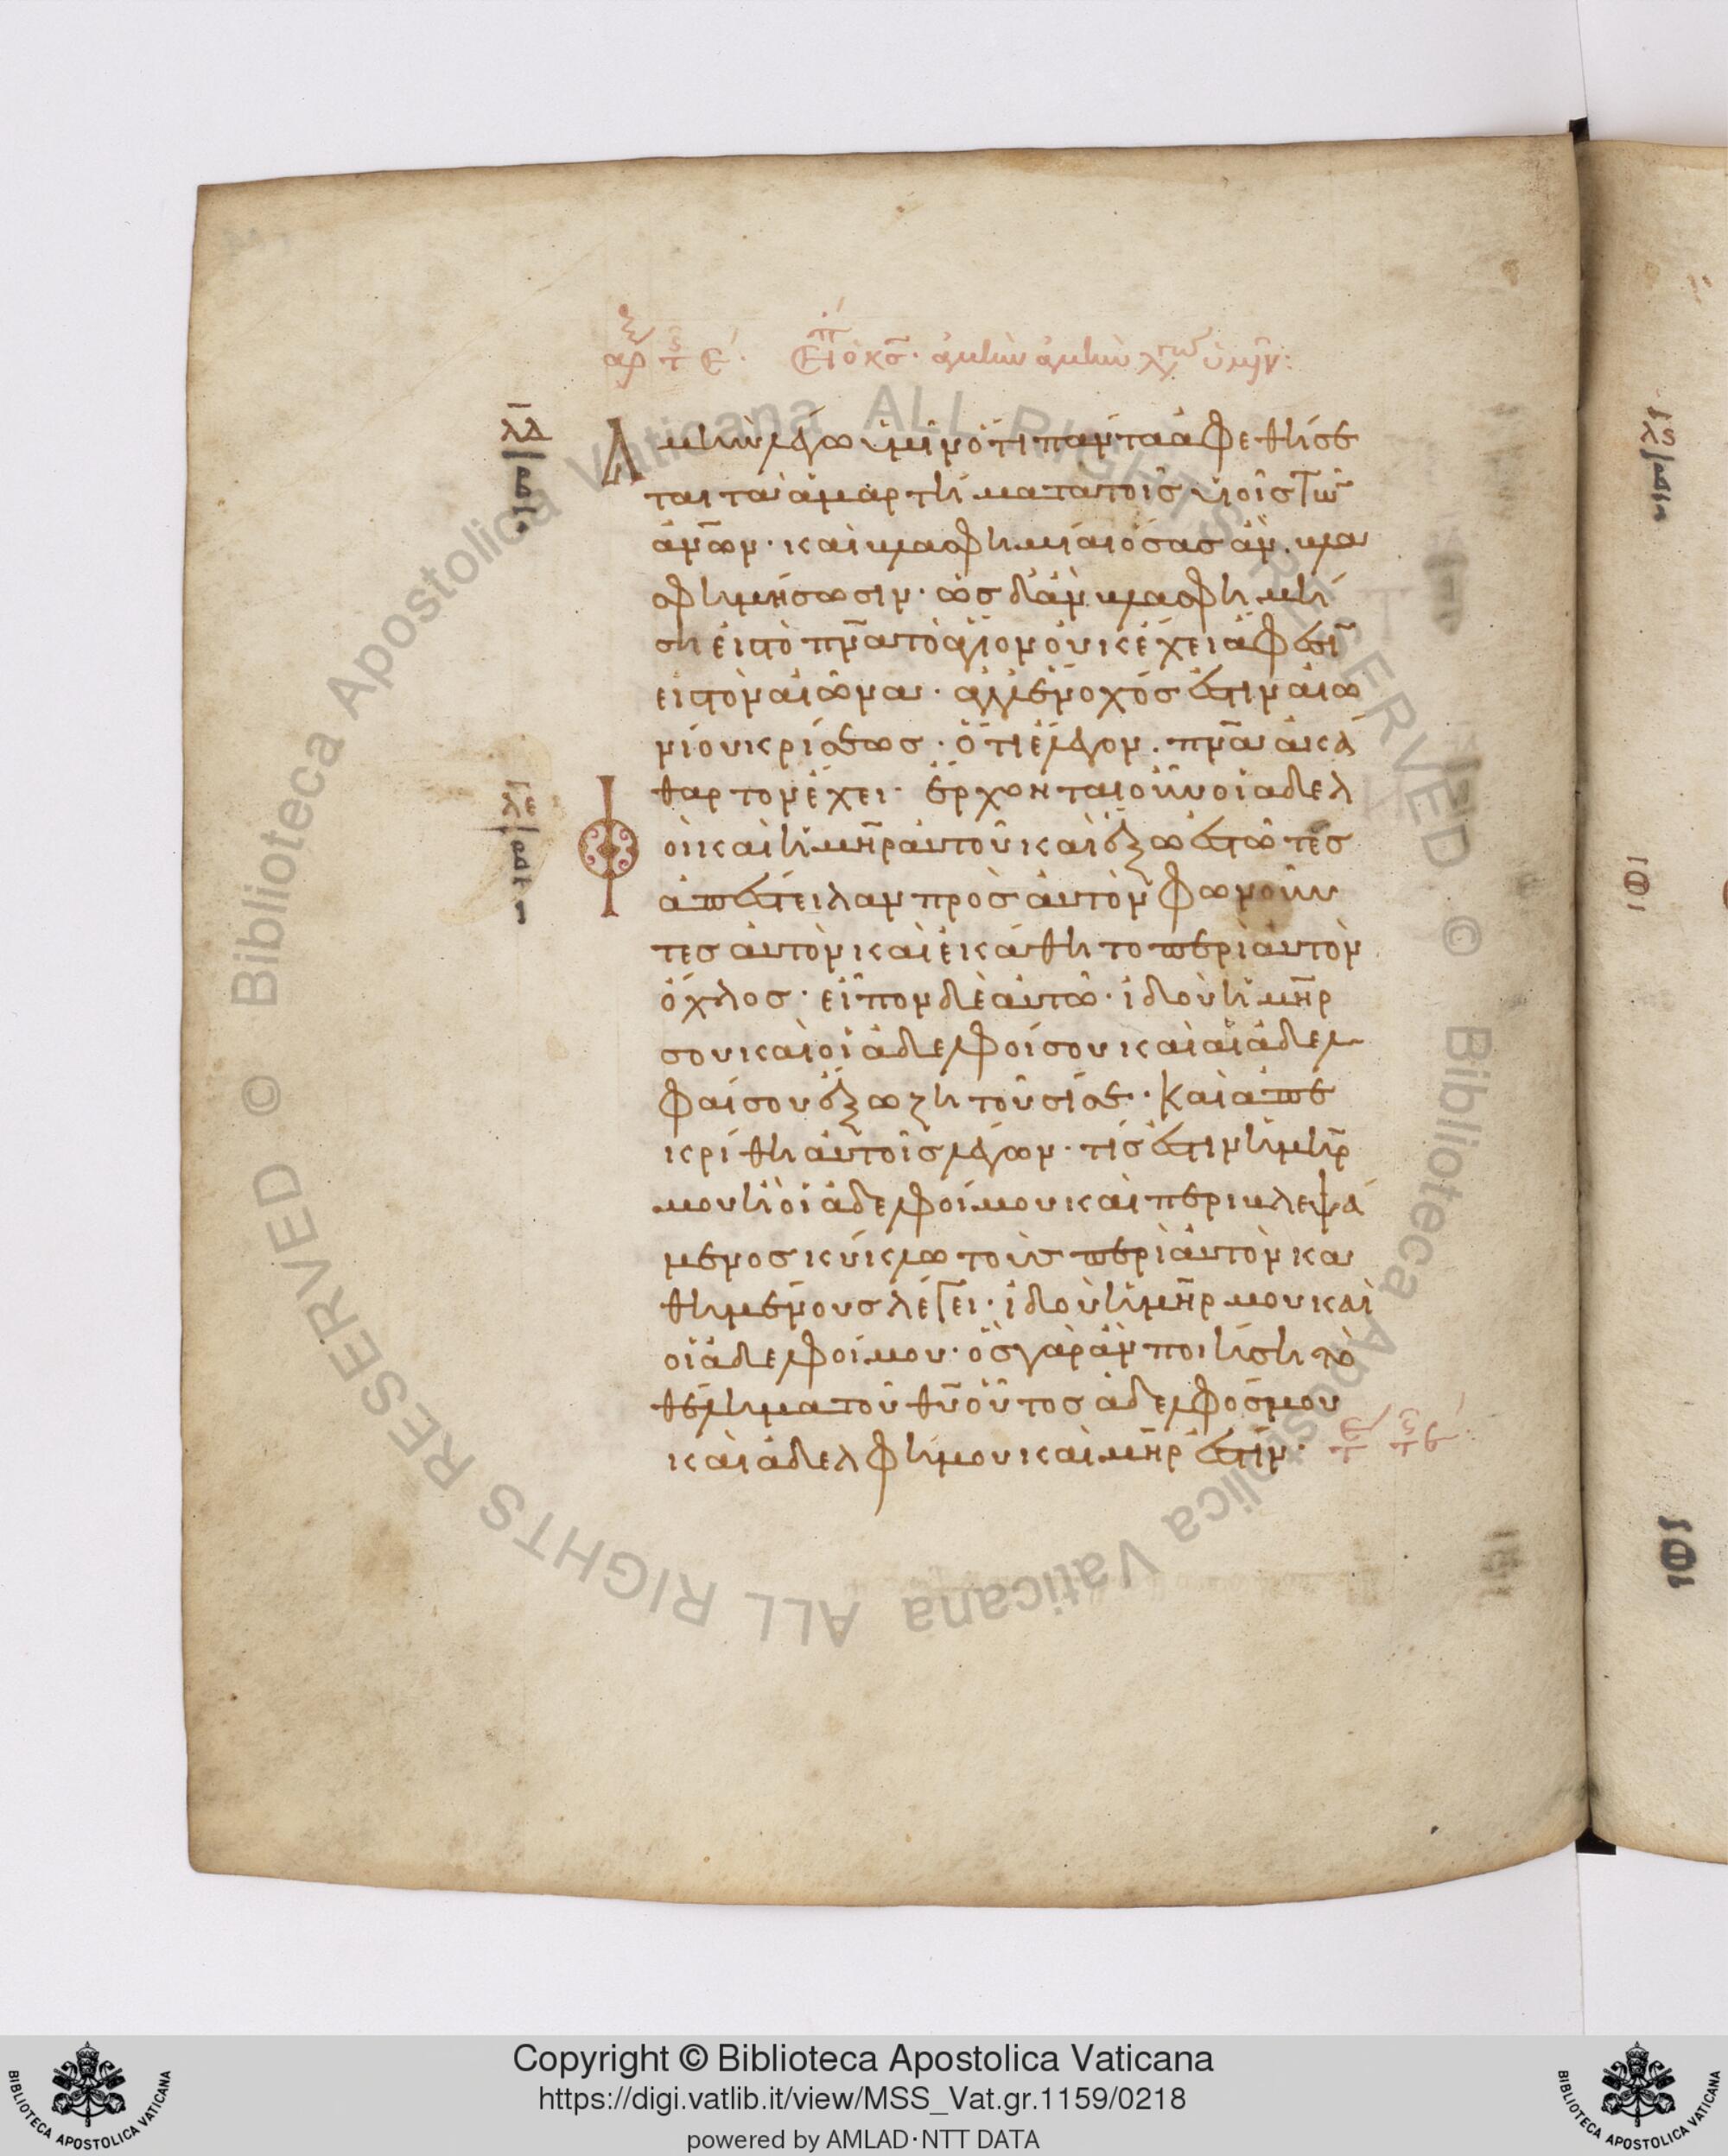 ἀρ τ ε. Εἶπ ὁ κς. ἀμὴν ἀμὴν λέγω ὑμῖν:
λδ
Ἀμὴν λέγω ὑμῖν ὅτι πάντα ἀφεθήσε
ται τὰ ἁμαρτήματα τοῖς υἱοῖς τῶ
ἀνων· καὶ βλασφημίαι ὅσας ἂν βλα
σφημήσωσιν· ὡς δ' ἂν βλασφημή
ση εἰς τὸ πνα τὸ ἅγιον οὐκ ἔχει ἄφεσι
εἰς τὸν αἰῶνα· ἀλλ' ἔνοχός ἐστιν αἰω
νίου κρίσεως· ὅτι ἔλεγον. πνα ἀκά
θαρτον ἔχει· ἔρχονται οὖν οἱ ἀδελ
λε
φοὶ καὶ ἡ μηρ αὐτοῦ καὶ ἔξω ἑστῶτες
ἀπέστειλαν πρὸς αὐτὸν φωνοῦν
τες αὐτὸν καὶ ἐκάθητο περὶ αὐτὸν
ὄχλος· εἶπον δὲ αὐτῶ· ἰδοὺ ἡ μηρ
σου καὶ οἱ ἀδελφοί σου καὶ αἱ ἀδελ
φαί σου ἔξω ζητοῦσί σε· Καὶ ἀπε
κρίθη αὐτοῖς λέγων· τίς ἐστιν ἡ μηρ
μου ἢ οἱ ἀδελφοί μου καὶ περιβλεψά
μενος κύκλω τοὺς περὶ αὐτὸν κα
θημένους λέγει· ἰδοὺ ἡ μηρ μου καὶ
οἱ ἀδελφοί μου· ὃς γὰρ ἂν ποιήση τὸ
θέλημα τοῦ θυ οὗτος ἀδελφός μου
καὶ ἀδελφή μου καὶ μηρ ἐστίν·
λς
Copyright © Biblioteca Apostolica Vaticana
https://digi.vatlib.it/view/MSS_Vat.gr.1159/0218
powered by AMLAD·NTT DATA
BIBLIOTECA APOSTOLICA VATICANA
BIBLIOTECA APOSTOLICA VATICANA
© Biblioteca Apostolica Vaticana ALL RIGHTS RESERVED © Biblioteca Apostolica Vaticana ALL RIGHTS RESERVED